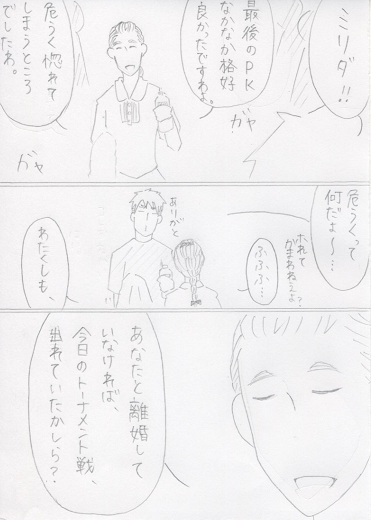 ミリダ!!
最後のPK
なかなか格好
良かったですわよ。
危うく惚れて
しまうところ
でしたわ。
ガヤ
ガヤ
危うくって
何だよ〜…
ホれて
かまわねぇよ?
ありがと
ふふふ…
わたくしも、
あなたと離婚して
いなければ、
今日のトーナメント戦、
出れていたかしら?